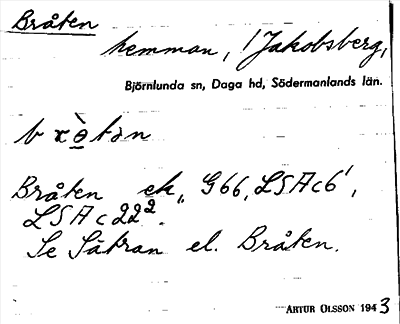 Bråten
hemman, 1 Jakobsberg,
Björnlunda sn, Daga hd, Södermanlands län.
Bråten ek, G66, LSAc6¹,
LSAc22².
Se Sätran el. Bråten.
ARTUR OLSSON 1943